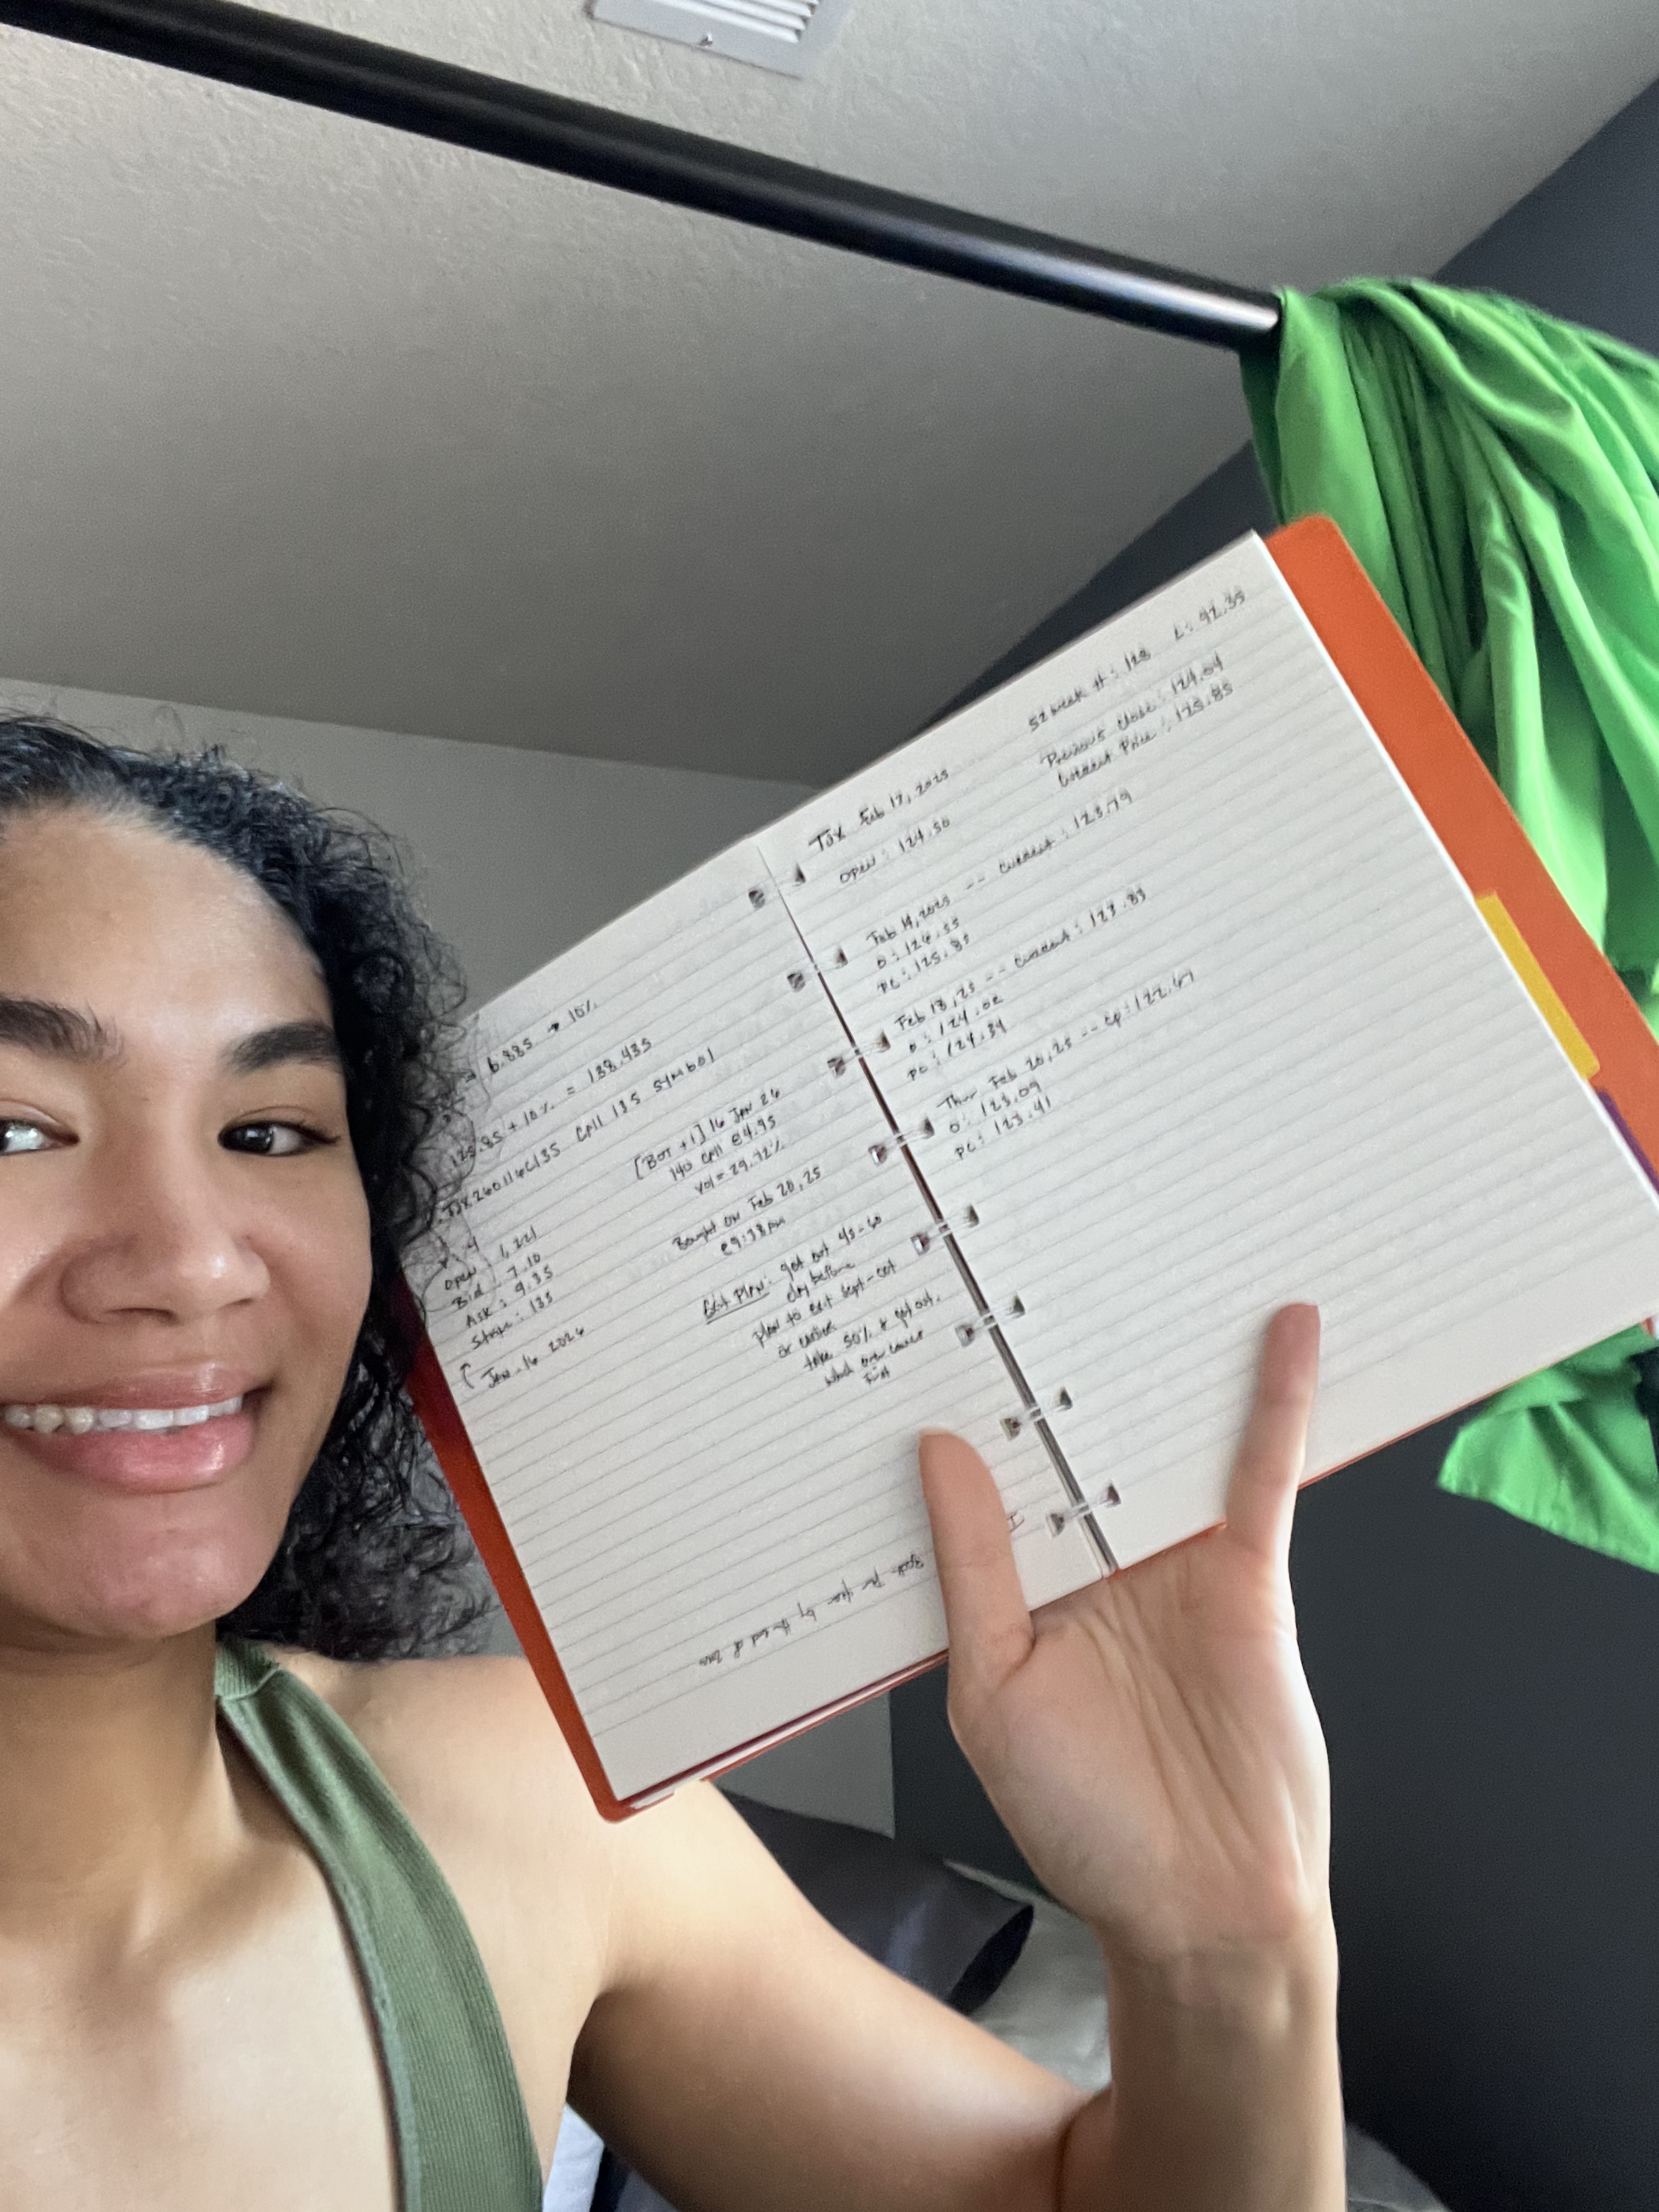 → 6.885 → 10%
125.85 + 10% = 138.435
TJX260116C135 CALL 135 SYMBOL
[BOT +1] 16 JAN 26
140 CALL @4.95
vol = 29.72%
Bought on Feb 20, 25
@9:38am
Open: 1,221
Bid: 7.10
Ask: 9.35
Strike: 135
↑ Jan. 16 2026
Exit Plan: get out 45-60
day before
plan to exit Sept-Oct
or earlier
take 50% & get out.
which ever comes
first
TJX Feb 13, 2025
52 week H: 128 L: 92.35
Open: 124.50
Previous Close: 124.04
Current Price: 125.85
Feb 14, 2025 -- Current: 123.79
O: 126.35
PC: 125.85
Feb 18, 25 -- Current: 123.83
O: 124.02
PC: 124.34
Thur Feb 20, 25 -- Cp: 122.67
O: 123.09
PC: 123.41